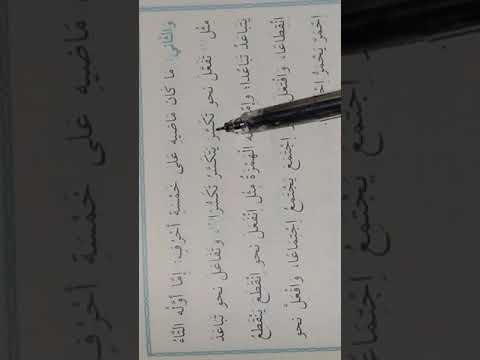 وَالثَّانِي: مَا كَانَ مَاضِيهِ عَلَى خَمْسَةِ أَحْرُفٍ: إِمَّا أَوَّلُهُ التَّاءُ
مِثْلُ: تَفَعَّلَ نَحْوُ تَكَسَّرَ يَتَكَسَّرُ تَكَسُّرًا، وَتَفَاعَلَ نَحْوُ تَبَاعَدَ
يَتَبَاعَدُ تَبَاعُدًا؛ وَإِمَّا الْهَمْزَةُ مِثْلُ انْفَعَلَ نَحْوُ انْقَطَعَ يَنْقَطِعُ
انْقِطَاعًا، وَافْتَعَلَ اِجْتَمَعَ يَجْتَمِعُ اِجْتِمَاعًا، وَافْعَلَّ نَحْوُ
اِحْمَرَّ يَحْمَرُّ